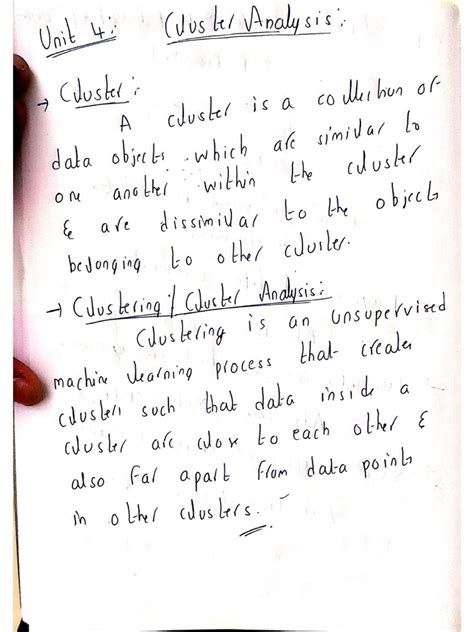 Unit 4: Cluster Analysis:
→ Cluster:
A cluster is a collection of
data objects which are similar to
one another within the cluster
& are dissimilar to the objects
belonging to other cluster.
→ Clustering / Cluster Analysis:
Clustering is an unsupervised
machine learning process that creates
clusters such that data inside a
cluster are close to each other &
also far apart from data points
in other clusters.